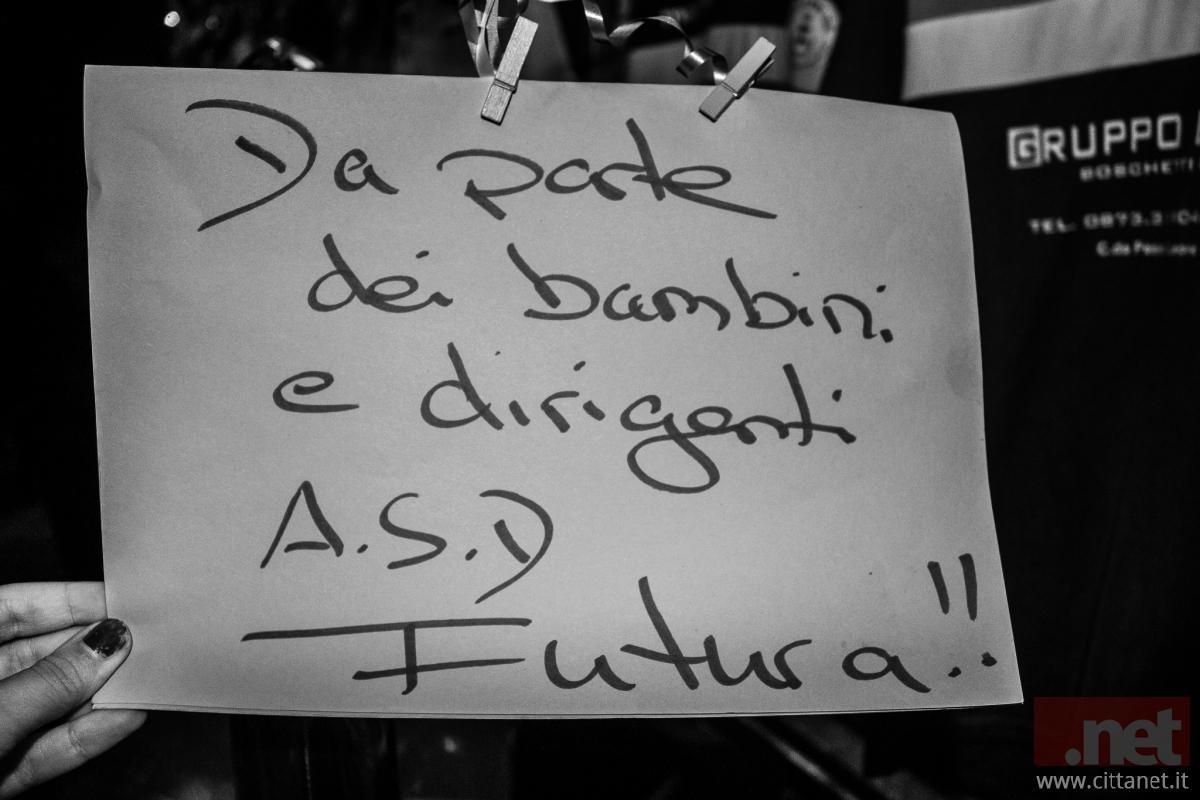 Da parte
dei bambini
e dirigenti
A.S.D
Futura!!
GRUPPO
BOSCHETTI
TEL. 0873.3
.net
www.cittanet.it